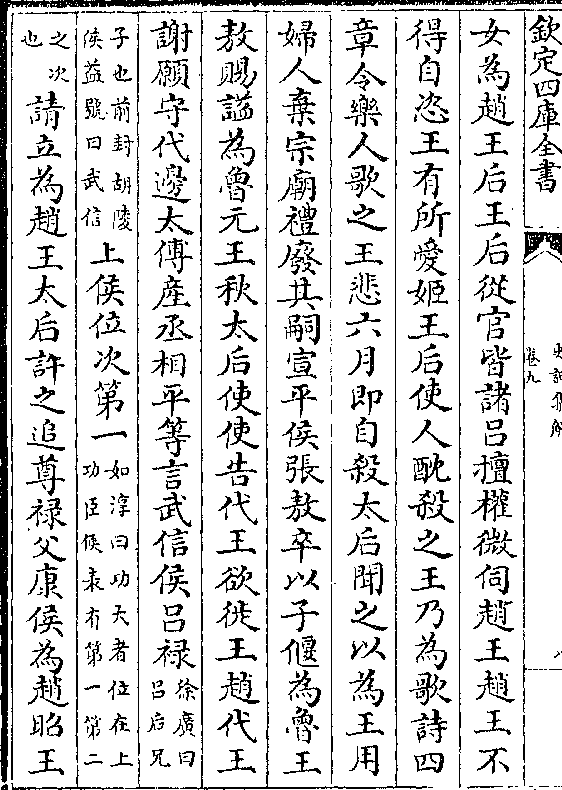 欽定四庫全書
史記集解
卷九
女為趙王后王后從官皆諸吕擅權微伺趙王趙王不
得自恣王有所愛姬王后使人酖殺之王乃為歌詩四
章令樂人歌之王悲六月即自殺太后聞之以為王用
婦人棄宗廟禮廢其嗣宣平侯張敖卒以子偃為魯王
敖賜諡為魯元王秋太后使使告代王欲徙王趙代王
謝願守代邊太傅產丞相平等言武信侯吕禄徐廣曰吕后兄
子也前封胡陵侯益號曰武信上侯位次第一如淳曰功大者位在上功臣侯表有第一第二
之次也請立為趙王太后許之追尊禄父康侯為趙昭王